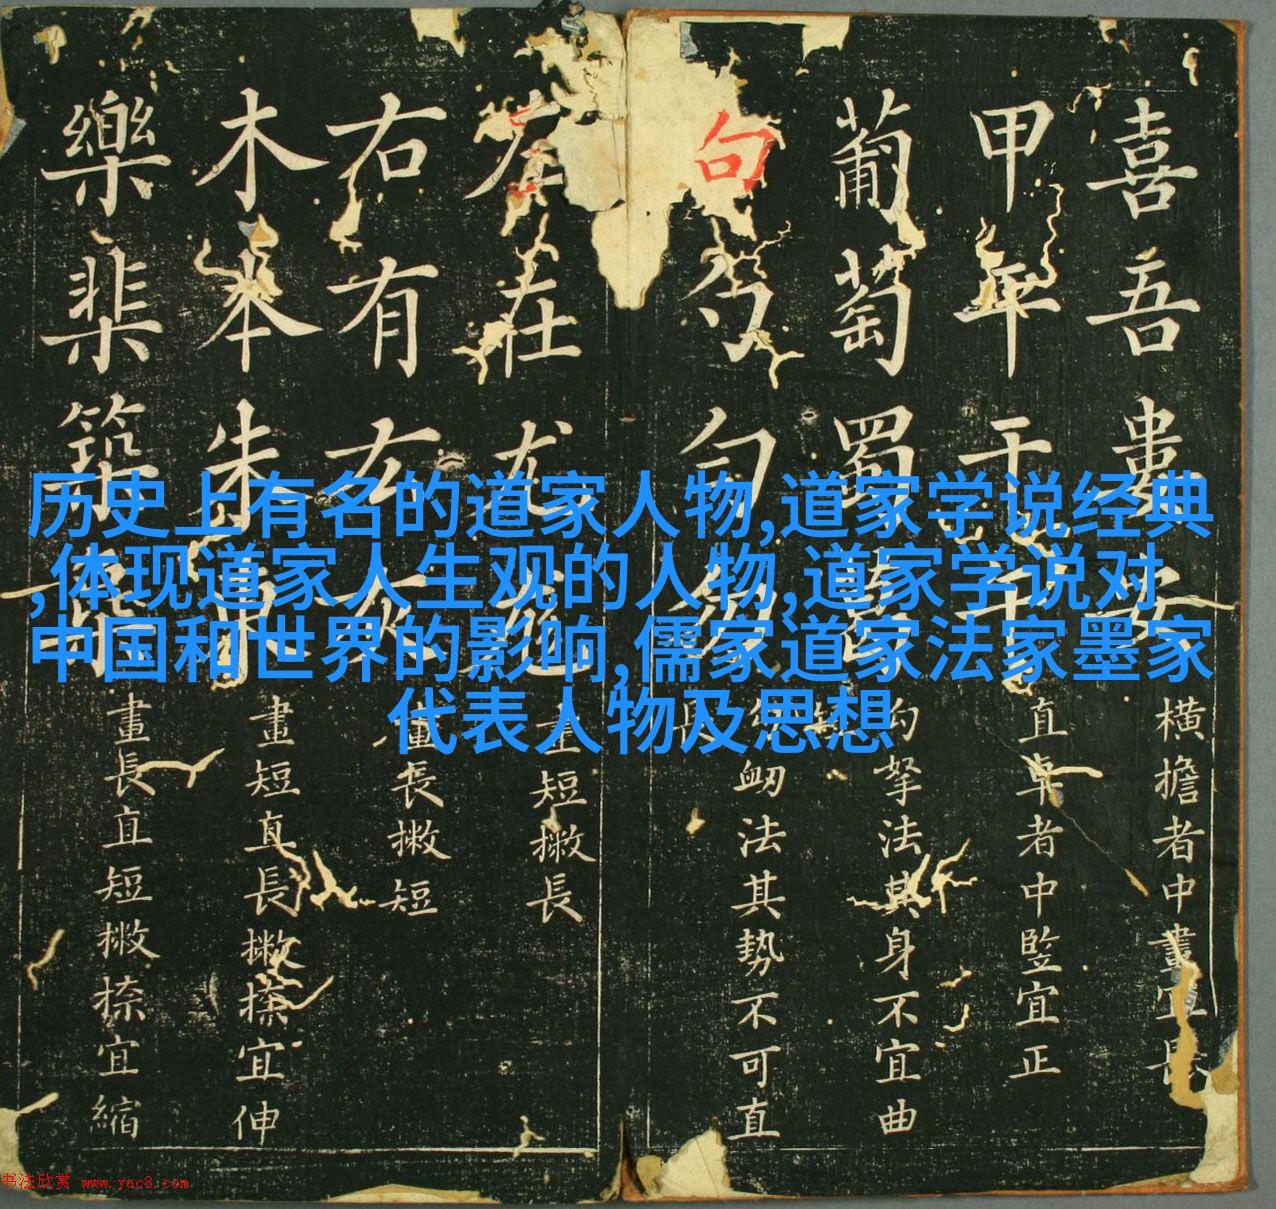 历史上有名的道家人物,道家学说经典
,体现道家人生观的人物,道家学说对
中国和世界的影响,儒家道家法家墨家
代表人物及思想
喜吾婁安
横擔者中畫宜
甲平干
直卓者中竪宜正
葡萄蜀
勾拏法其身不宜曲
句勺勻勿
衂法其势不可直
左在尤
畫短撇長
右有灰
畫長撇短
木本朱
畫短直長撇捺宜伸
樂棐築
畫長直短撇捺宜縮
书法欣赏 www.yac8.com